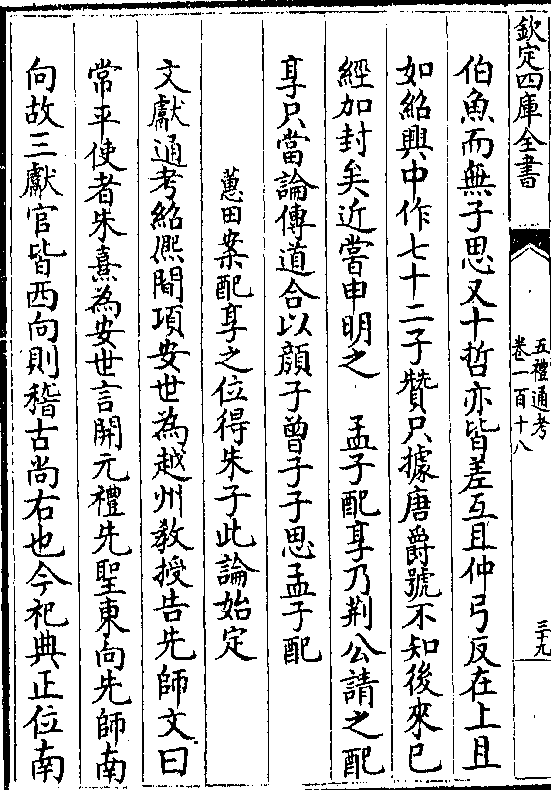 欽定四庫全書
五禮通考
卷一百十八
三十九
伯魚而無子思又十哲亦皆差互且仲弓反在上且
如紹興中作七十二子贊只據唐爵號不知後來已
經加封矣近嘗申明之　孟子配享乃荆公請之配
享只當論傳道合以顔子曾子子思孟子配
蕙田案配享之位得朱子此論始定
文獻通考紹熙間項安世為越州教授告先師文曰
常平使者朱熹為安世言開元禮先聖東向先師南
向故三獻官皆西向則稽古尚右也今祀典正位南